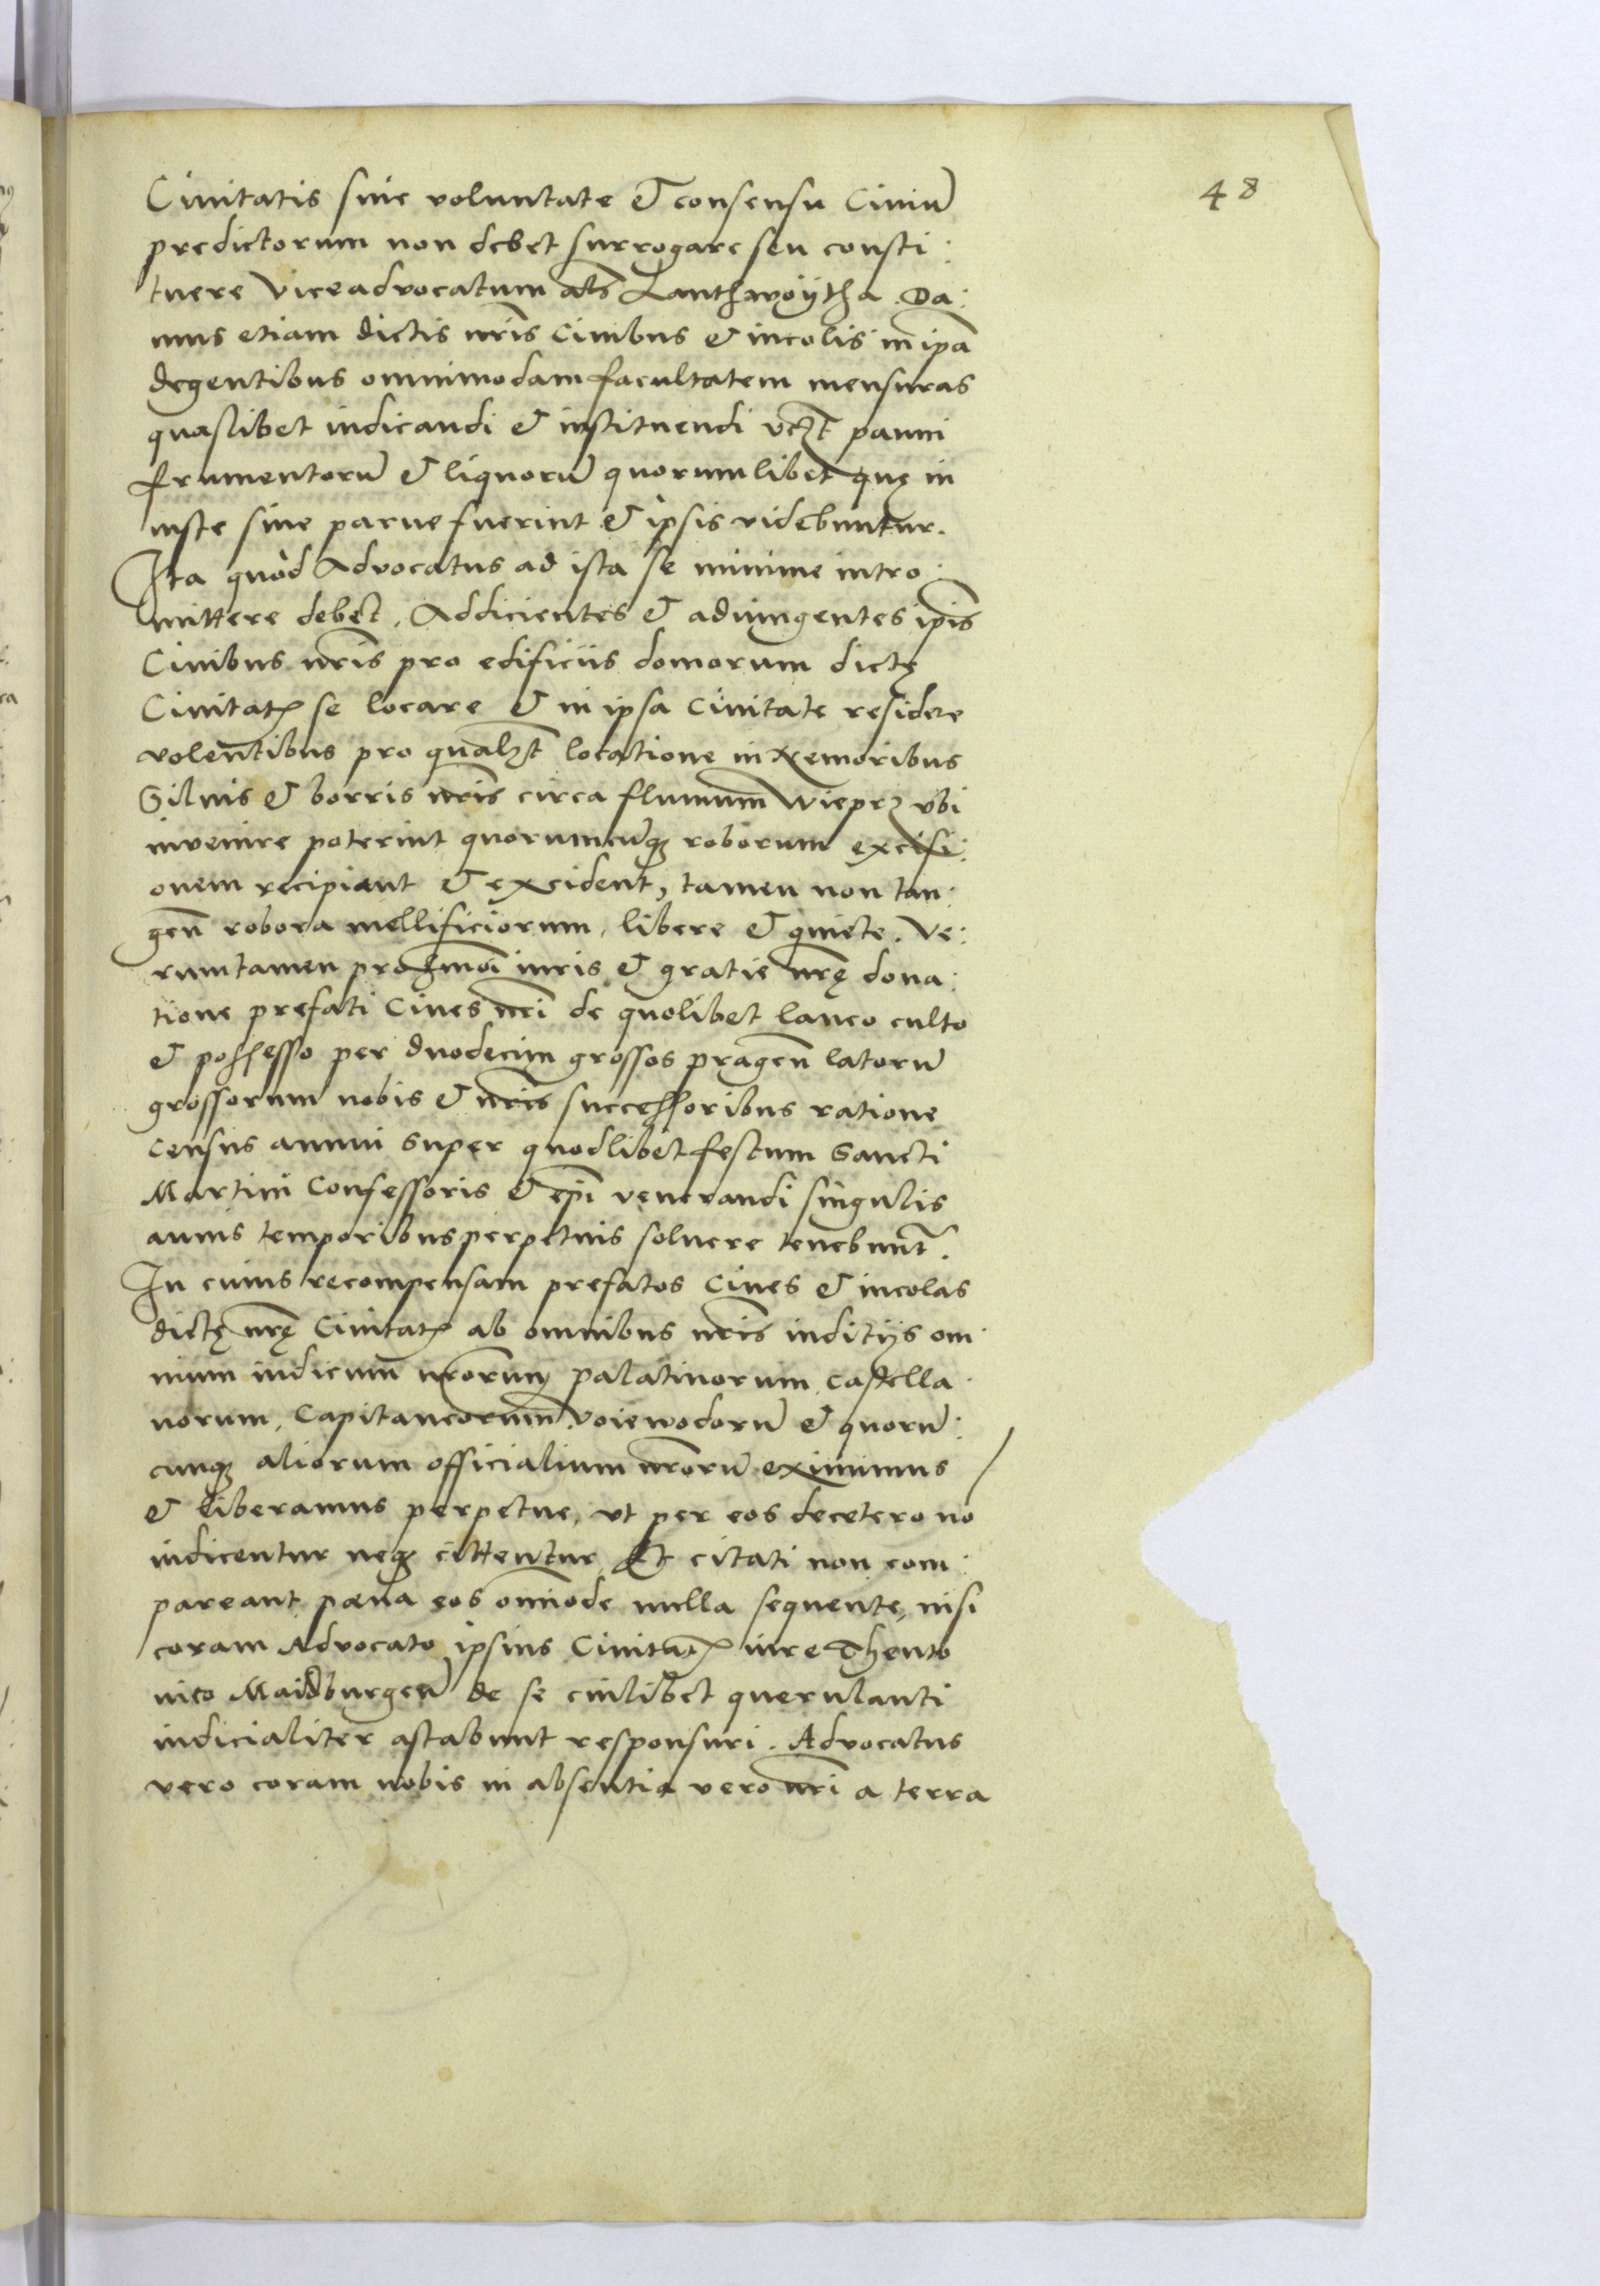 48
Ciuitatis siue voluntate & consensu Ciuiū
predictorum non debet surrogare seu consti:
tuere viceadvocatum als Lanthwoÿtha. Da:
mus etiam dictis nr̄is Ciuibus & incolis in ip̄a
degentibus omnimodam facultatem mensuras
quaslibet iudicandi & instituendi vczt panni
frumentorū & liquorū quorumlibet quę in
iuste siue parue fuerint & ipsis videbuntur.
Ita quòd Advocatus ad ista se minime intro:
mittere debet. Addicientes & adiungentes ip̄is
Ciuibus nr̄is pro edificiis domorum dictę
Ciuitatꝭ se locare & in ipsa Ciuitate residere
volentibus pro qualzt locatione in Nemoribus
Siluis & borris nr̄is circa fluuium Wieprz vbi
invenire poterint quorumcunqꝫ roborum excisi:
onem recipiant & excident, tamen non tan:
gen̄ robora mellificiorum, libere & quiete. Ve:
rumtamen pro hmōi iuris & gratie nr̄ę dona:
tione prefati Ciues nr̄i de quolibet laneo culto
& possesso per duodecim grossos pragen̄ latorū
grossorum nobis & nr̄is successoribus ratione
census annui super quodlibet festum Sancti
Martini Confessoris & ep̄i venerandi singulis
annis temporibus perpetuis soluere tenebunt̄.
In cuius recompensam prefatos Ciues & incolas
dictę nr̄ę Ciuitatꝭ ab omnibus nr̄is iuditijs om:
nium iudicum nr̄orum, palatinorum, castella:
norum, Capitaneorum, voiewodorū & quorū:
cunqꝫ aliorum officialium nr̄orū eximimus
& liberamus perpetue, vt per eos decetero nō
iudicentur neqꝫ cittentur. Et citati non com:
pareant pœna eos om̄iode nulla sequente, nisi
coram Advocato ipsius Ciuitatꝭ iure Thento
nico Maidburgen̄ de se cuilibet querulanti
iudicialiter astabunt responsuri. Advocatus
vero coram nobis in absentia vero nr̄i a terra